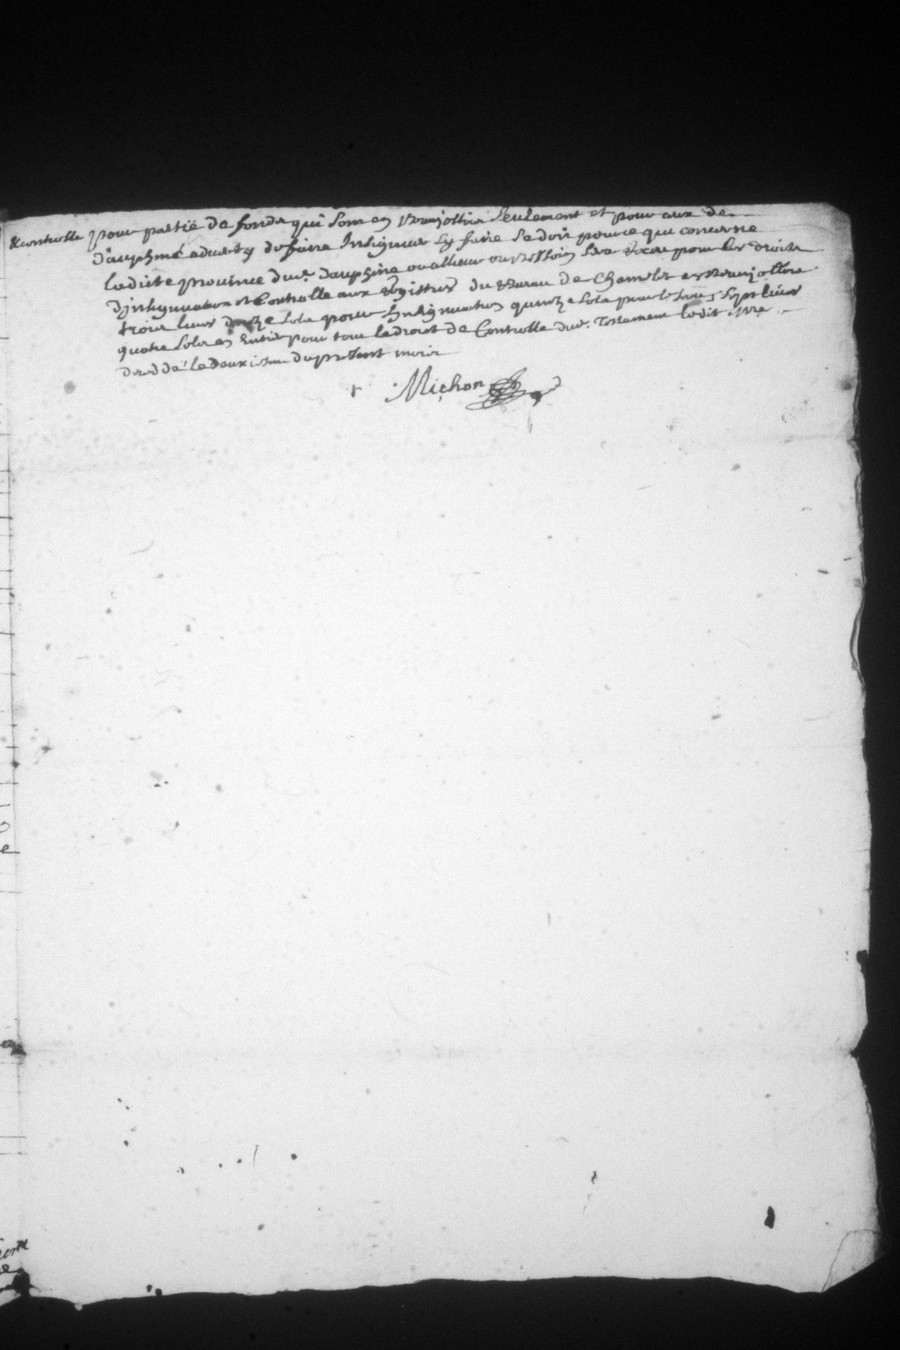 & controlle pour partie de fonds qui sont en Beaujollois seulement et pour ceux de
dauphiné adverty de faire Insignuer sy faire se doit pour ce qui concerne
ladite province du dauphiné ou alheur ou besoin sera Receu pour les droits
d'insignuation et Controlle aux Registres du Bureau de en Beaujollois
trois livres douze sols pour Insignuation quinze sols pour sept livres
quatre sols en Entier pour tout le droit de Controlle dud. Testament ledit
de le deuxiesme du present mois
Michon